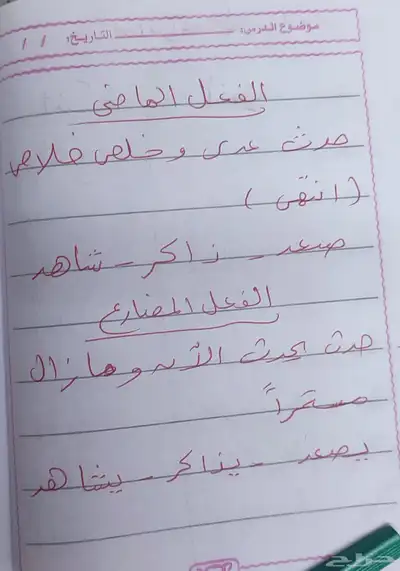 موضوع الدرس: التاريخ: / /
الفعل الماضي
حدث عدى وخلص خلاص
(انتهى)
صعد - ذاكر - شاهد
الفعل المضارع
حدث يحدث الآن ومازال
مستمراً
يصعد - يذاكر - يشاهد